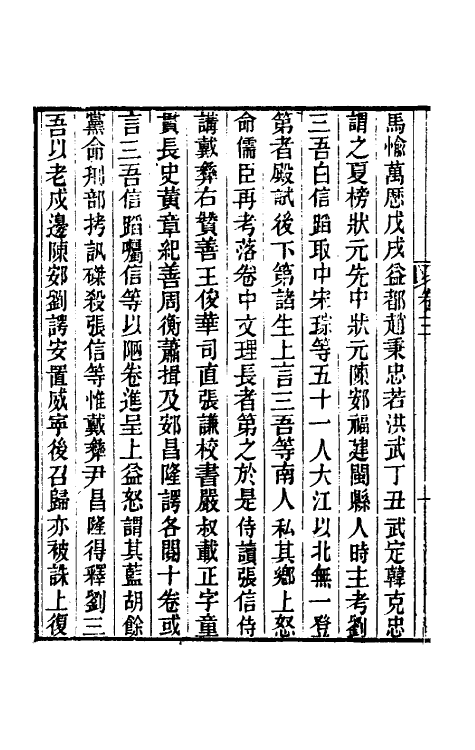 馬愉萬歷戊戌益都趙秉忠若洪武丁丑武定韓克忠
謂之夏榜狀元先中狀元陳䢿福建閩縣人時主考劉
三吾白信蹈取中宋琮等五十一人大江以北無一登
第者殿試後下第諸生上言三吾等南人私其鄉上怒
命儒臣再考落卷中文理長者第之於是侍讀張信侍
講戴彝右贊善王俊華司直張謙校書嚴叔載正字童
貫長史黃章紀善周衡蕭揖及䢿昌隆諤各閱十卷或
言三吾信蹈囑信等以陋卷進呈上益怒謂其藍胡餘
黨命刑部拷訊磔殺張信等惟戴彝尹昌隆得釋劉三
吾以老戍邊陳䢿劉諤安置威寧後召歸亦被誅上復
卷三